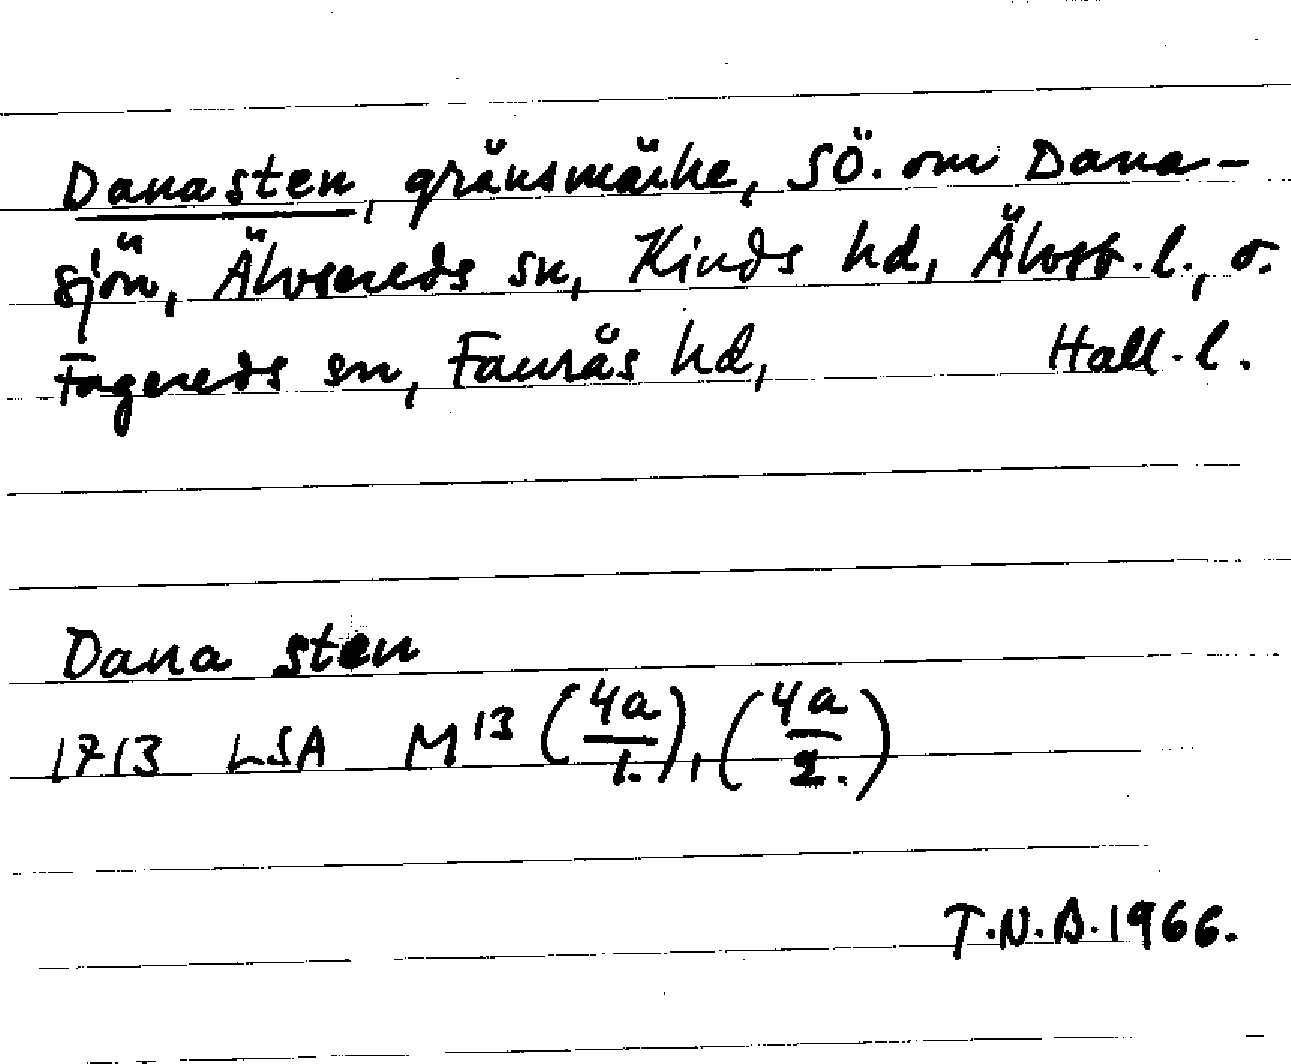 Danasten, gränsmärke, SÖ. om Dana-
sjön, Älvsereds sn, Kinds hd, Älvsb. l., o.
Fagereds sn, Faurås hd, Hall. l.
Dana sten
1713 LSA M¹³ (4a/1.), (4a/2.)
T.N.B. 1966.